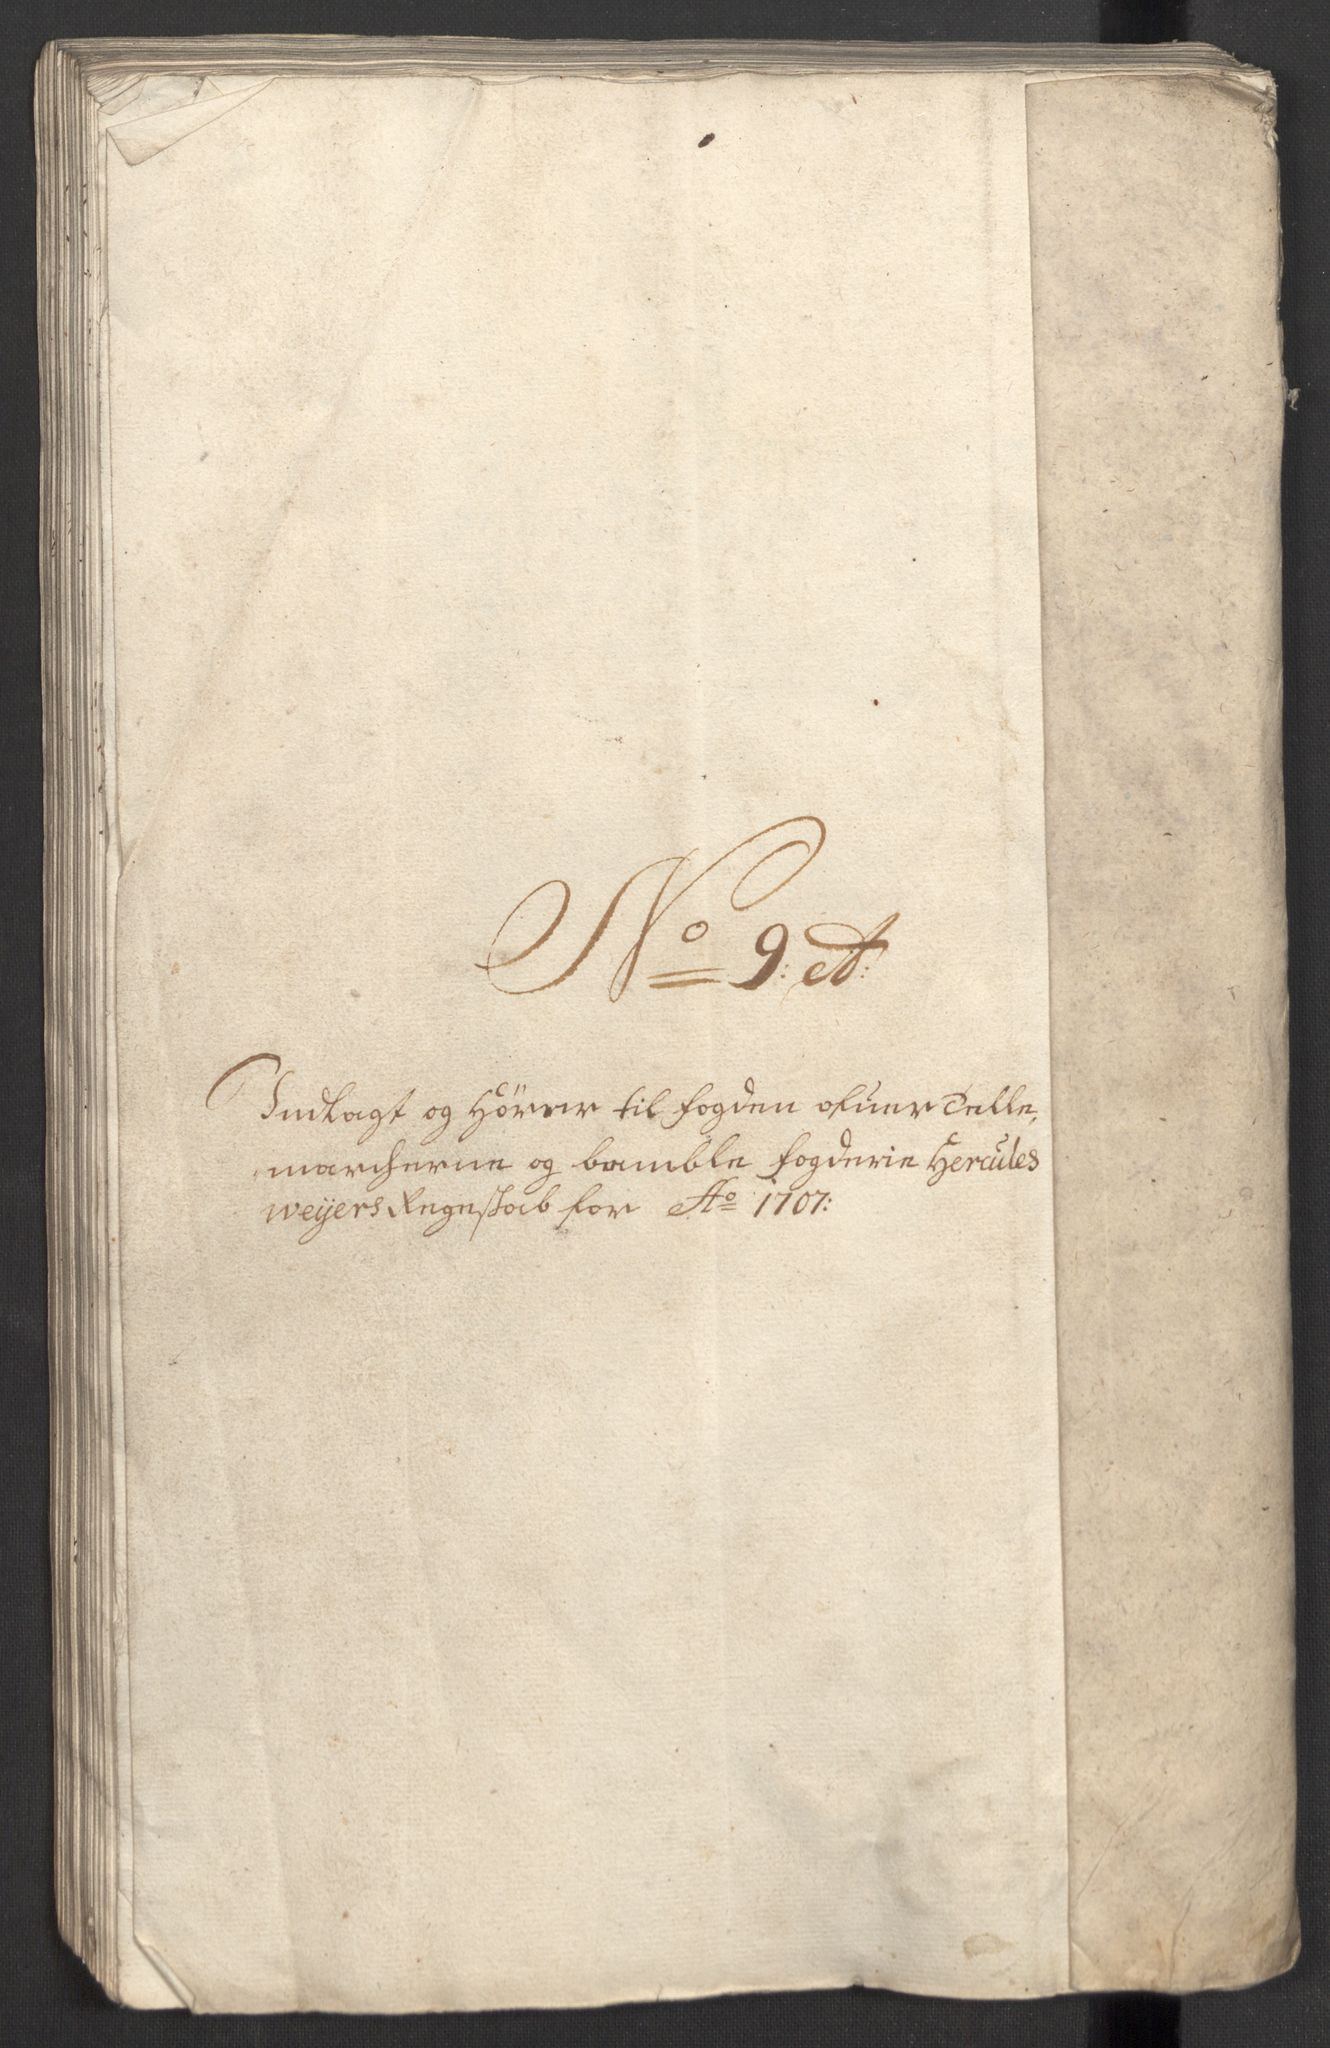 No 9: A:
Indlagt og Hörer til fogden ofuer Telle,
marcherne og bamble fogderie Hercules
weyers Regenskab for Ao 1707: